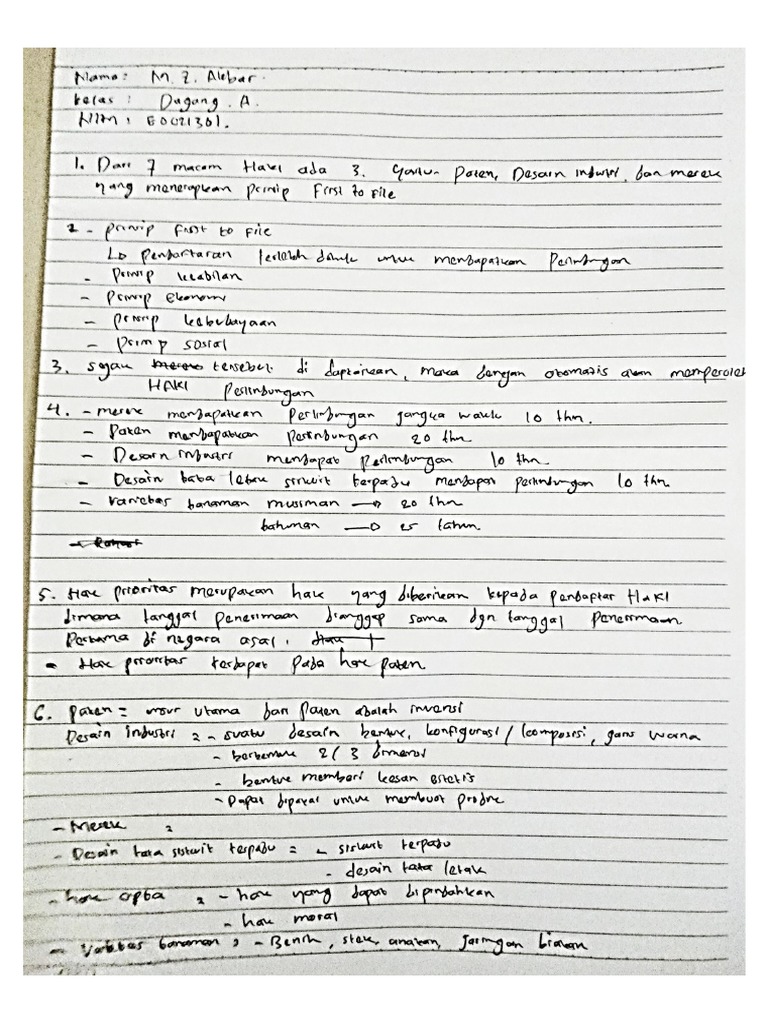 Nama : M. Z. Akbar.
Kelas : Dagang. A.
NIM : E0021301.
1. Dari 7 macam Haki ada 3. Yaitu Paten, Desain Industri, dan merek
yang menerapkan prinsip First to File
2 - prinsip First to File
↳ Pendaftaran terlebih dahulu untuk mendapatkan Perlindungan
- Prinsip keadilan
- Prinsip Ekonomi
- Prinsip kebudayaan
- Prinsip sosial
3. Sejak tersebut di Ciptakan, maka dengan otomatis akan memperoleh
HAKI Perlindungan
4. - merek mendapatkan Perlindungan jangka waktu 10 thn.
- Paten mendapatkan Perlindungan 20 thn
- Desain industri mendapat perlindungan 10 thn
- Desain tata letak sirkuit terpadu mendapat perlindungan 10 thn.
- varietas tanaman musiman → 20 thn
tahunan → 25 tahun
5. Hak prioritas merupakan hak yang diberikan kepada pendaftar HaKI
dimana tanggal penerimaan dianggap sama dgn tanggal penerimaan
Pertama di negara asal.
- Hak prioritas terdapat pada hak paten
6. Paten = unsur utama dari Paten adalah invensi
Desain industri = - suatu desain bentuk, konfigurasi / komposisi, garis warna
- berbentuk 2 / 3 dimensi
- bentuk memberi kesan estetis
- Dapat dipakai untuk membuat produk
- Merek =
- Desain tata sirkuit terpadu = - sirkuit terpadu
- desain tata letak
- hak cipta = - hak yang dapat dipindahkan
- hak moral
- Varietas tanaman = - Benih, stek, anakan, jaringan biakan